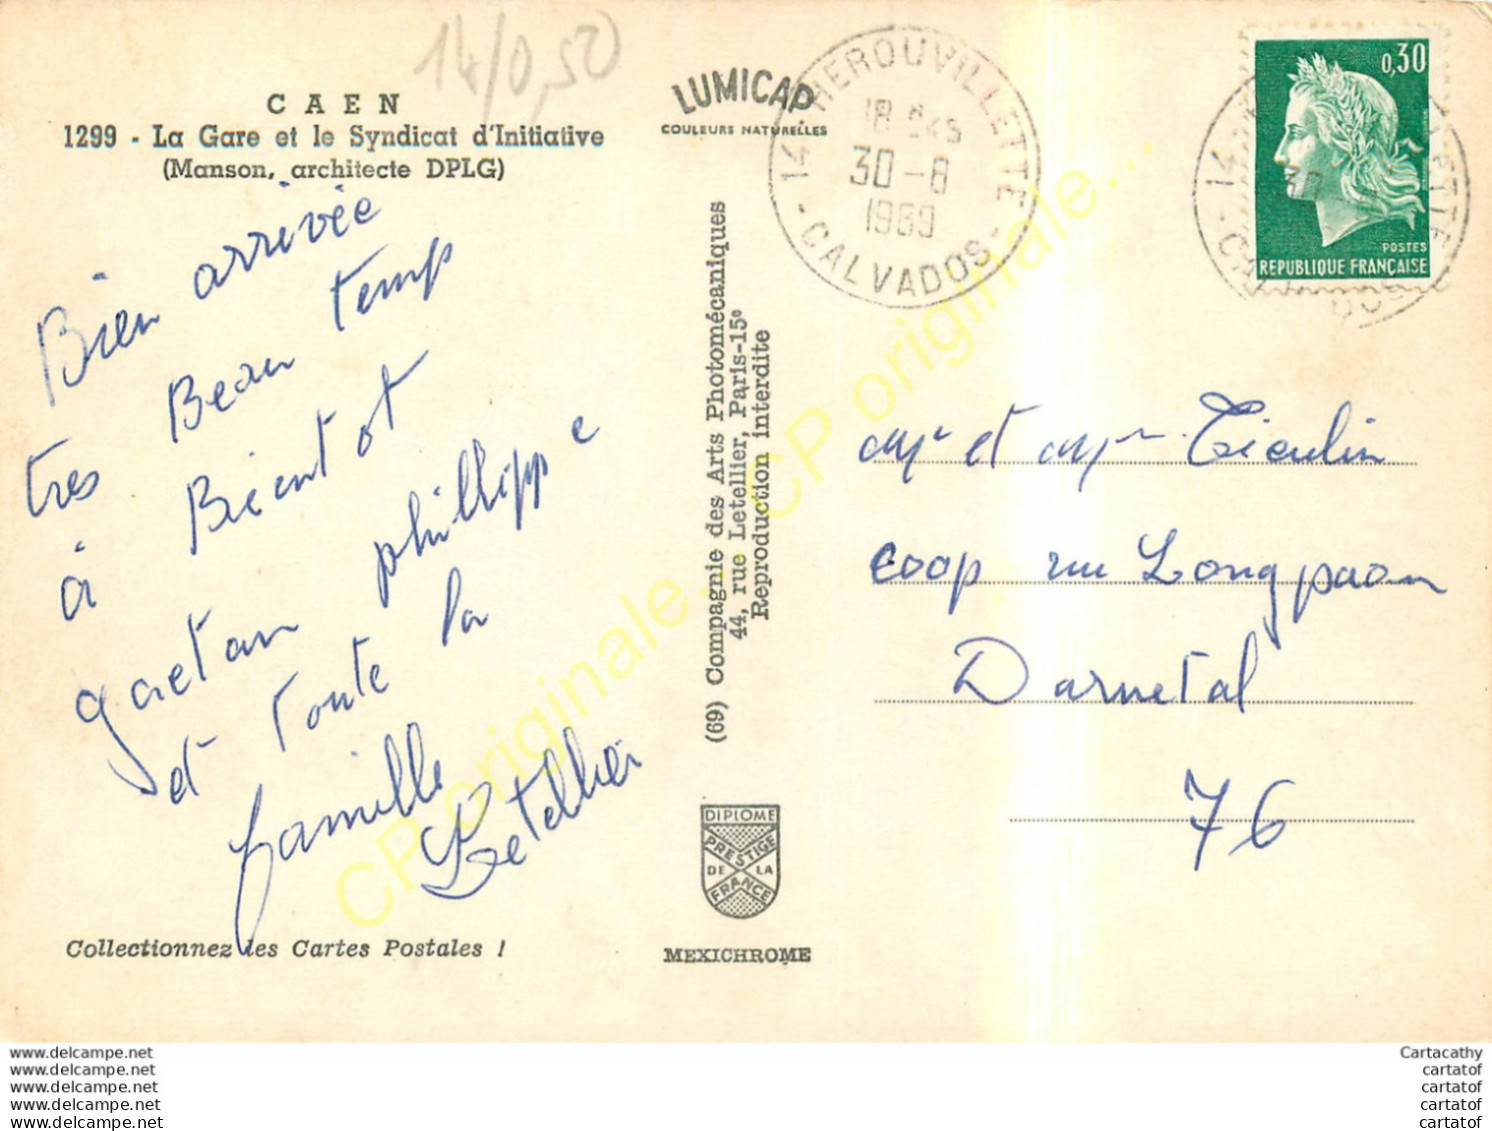 14/0,50
CAEN
1299 - La Gare et le Syndicat d'Initiative
(Manson, architecte DPLG)
Bien arrivée
très Beau temps
à Bientot
gaetan phillippe
et toute la
famille
Letellier
Collectionnez les Cartes Postales !
LUMICAP
COULEURS NATURELLES
(69) Compagnie des Arts Photomécaniques
44, rue Letellier, Paris-15e
Reproduction interdite
DIPLOME
PRESTIGE
DE LA
FRANCE
MEXICHROME
14 HEROUVILLETTE
18 H45
30-8
1969
- CALVADOS -
0,30
POSTES
REPUBLIQUE FRANÇAISE
Mr et Mme Tieulin
coop rue Longpaon
Darnetal
76
CP originale...
CP originale...
www.delcampe.net
www.delcampe.net
www.delcampe.net
www.delcampe.net
www.delcampe.net
Cartacathy
cartatof
cartatof
cartatof
cartatof